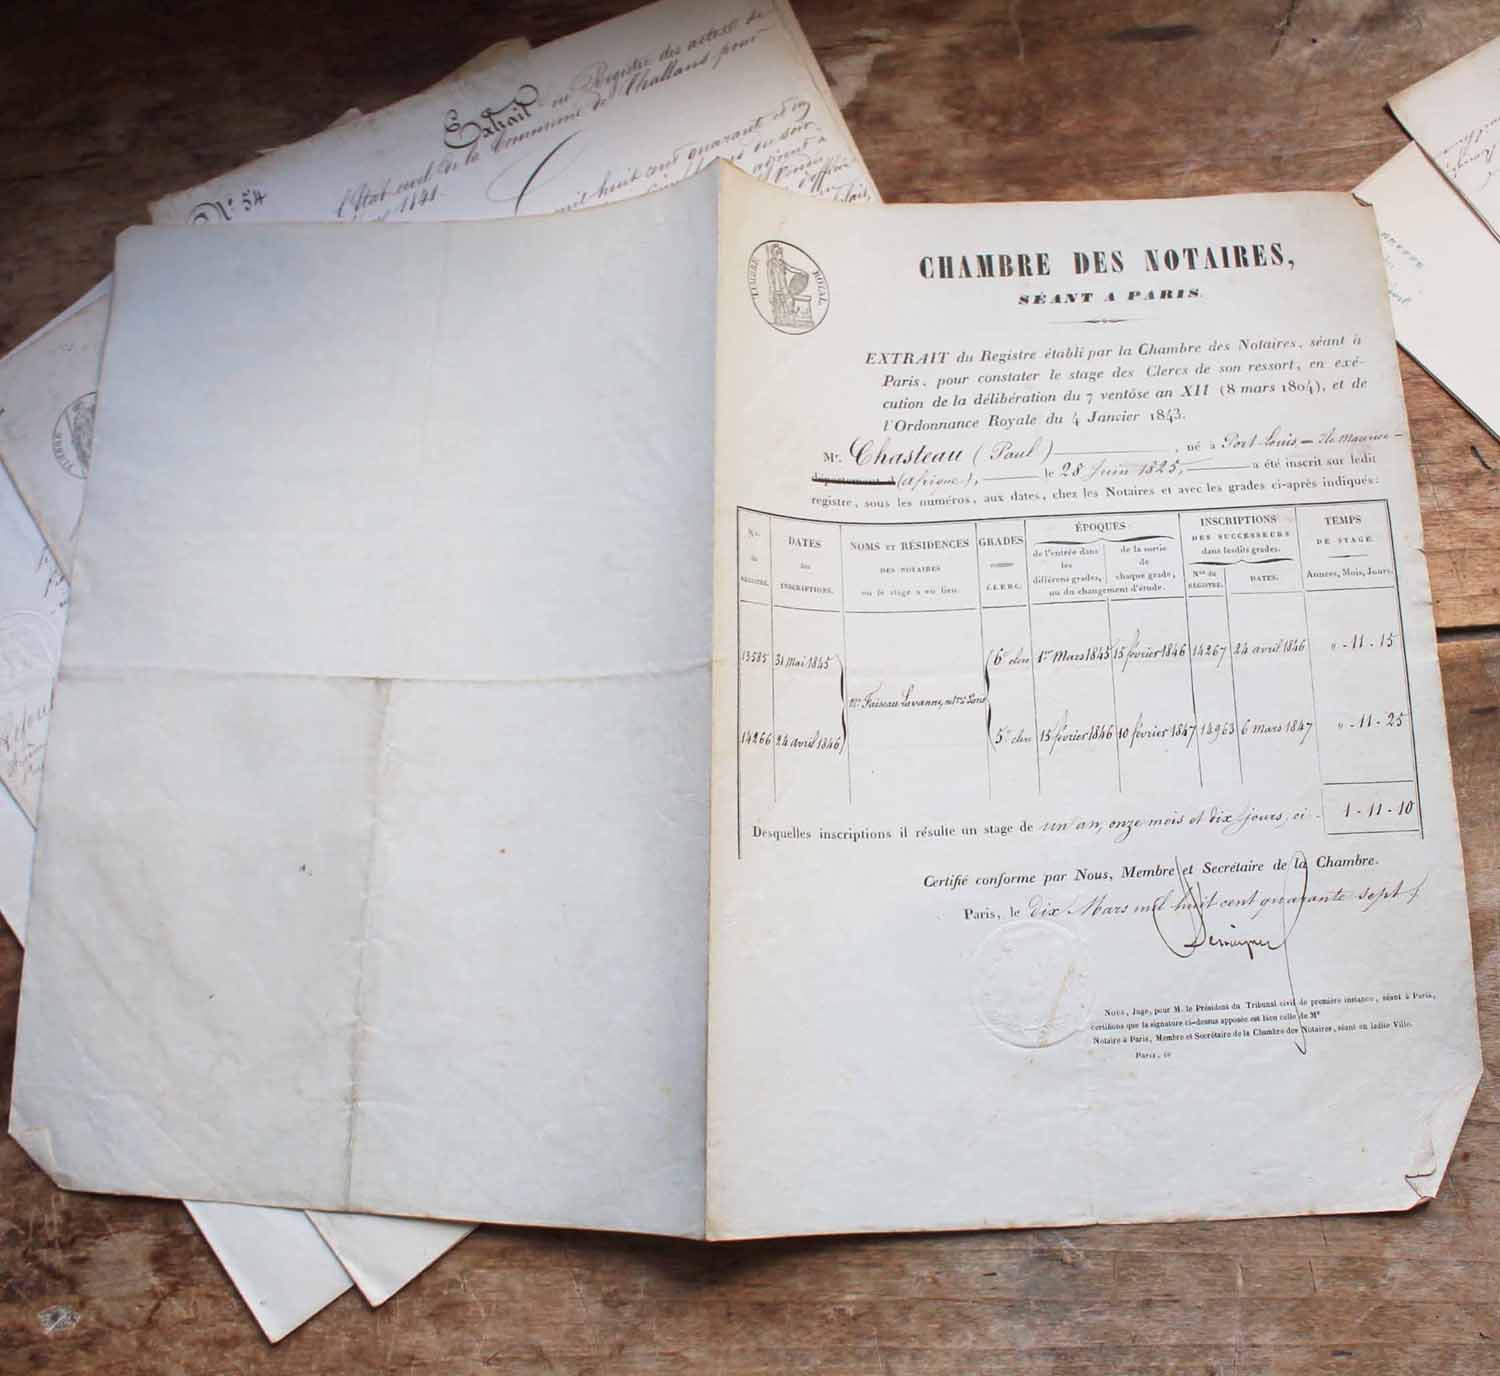 Extrait du Registre des actes de
l'État civil de la Commune de Challans pour
1841
N° 54
mil huit cent quarante et un
du soir
adjoint
TIMBRE ROYAL
CHAMBRE DES NOTAIRES,
SÉANT A PARIS.
EXTRAIT du Registre établi par la Chambre des Notaires, séant à
Paris, pour constater le stage des Clercs de son ressort, en exé-
cution de la délibération du 7 ventôse an XII (8 mars 1804), et de
l'Ordonnance Royale du 4 Janvier 1843.
Mr. Chasteau (Paul), né à Port Louis - Ile Maurice -
département d (Afrique), le 28 Juin 1825, a été inscrit sur ledit
registre, sous les numéros, aux dates, chez les Notaires et avec les grades ci-après indiqués:
Nos. du REGISTRE.
DATES des INSCRIPTIONS.
NOMS ET RÉSIDENCES DES NOTAIRES où le stage a eu lieu.
GRADES CLERC.
ÉPOQUES
de l'entrée dans les différens grades,
de la sortie de chaque grade,
ou du changement d'étude.
INSCRIPTIONS DES SUCCESSEURS dans lesdits grades.
Nos du REGISTRE.
DATES.
TEMPS DE STAGE.
Années, Mois, Jours.
13585 31 mai 1845 6e clerc 1er Mars 1845 15 février 1846 14267 24 avril 1846 " - 11 - 15
Mr. Faiseau Lavanne, nre à Paris
14266 24 avril 1846 5e clerc 15 février 1846 10 février 1847 14963 6 mars 1847 " - 11 - 25
Desquelles inscriptions il résulte un stage de un an, onze mois et dix jours, ci - 1 - 11 - 10
Certifié conforme par Nous, Membre et Secrétaire de la Chambre.
Paris, le dix Mars mil huit cent quarante sept
Nous, Juge, pour M. le Président du Tribunal civil de première instance, séant à Paris,
certifions que la signature ci-dessus apposée est bien celle de Me
Notaire à Paris, Membre et Secrétaire de la Chambre des Notaires, séant en ladite Ville.
Paris, le